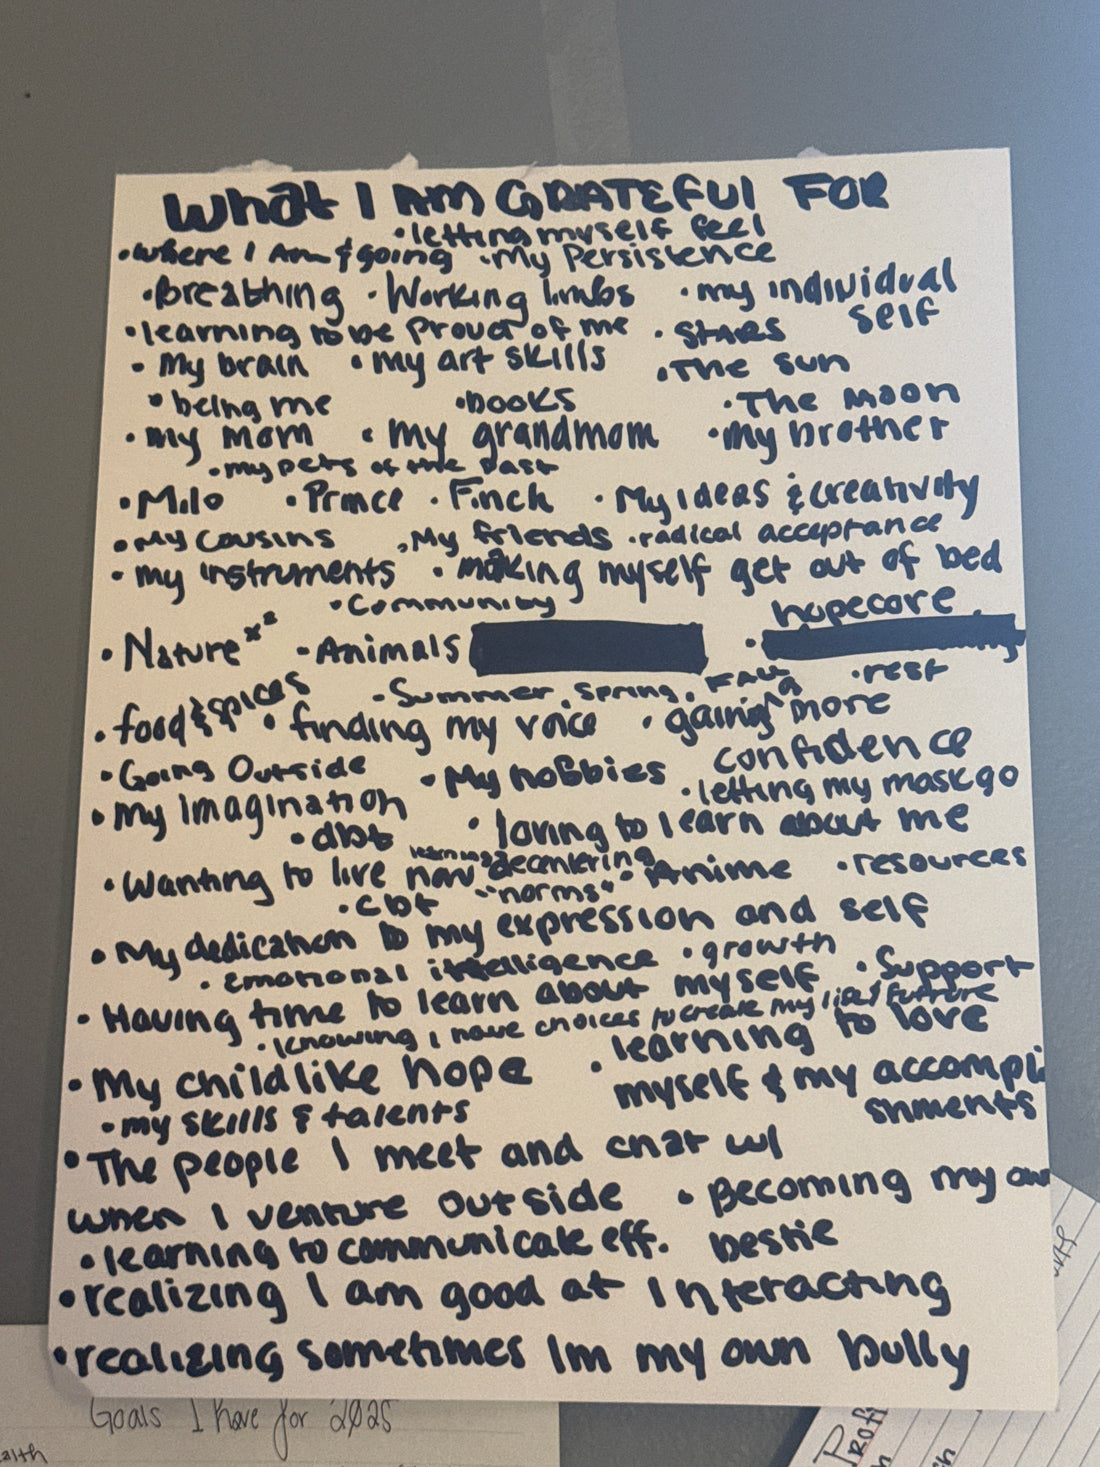 What I AM GRATEFUl FOR
• letting myself feel
• where I Am & going • My Persistence
• Breathing • Working limbs • my individual self
• learning to be proud of me • STARS
• My brain • my art skills • The sun
• being me • books • The Moon
• my mom • my grandmom • my brother
• my pets of the past
• Milo • Prince • Finch • My ideas & creativity
• My cousins • My friends • radical acceptance
• my instruments • making myself get out of bed
• Community hopecore
• Nature • Animals •
• Summer, Spring, FALL • rest
• food & spices • finding my voice • gaining more confidence
• Going Outside • My hobbies
• letting my mask go
• My imagination
• dbt • loving to learn about me
• Wanting to live now learning decentering "norms" • Anime • resources
• cbt
• My dedication to my expression and self
• Emotional intelligence • growth
• Having time to learn about myself • Support
• Knowing I have choices to create my life/future
• My childlike hope • learning to love myself & my accomplishments
• my skills & talents
• The people I meet and chat w/
when I venture outside • Becoming my ow
• learning to communicate eff. bestie
• realizing I am good at Interacting
• realizing sometimes Im my own bully
Goals I have for 2025
alth